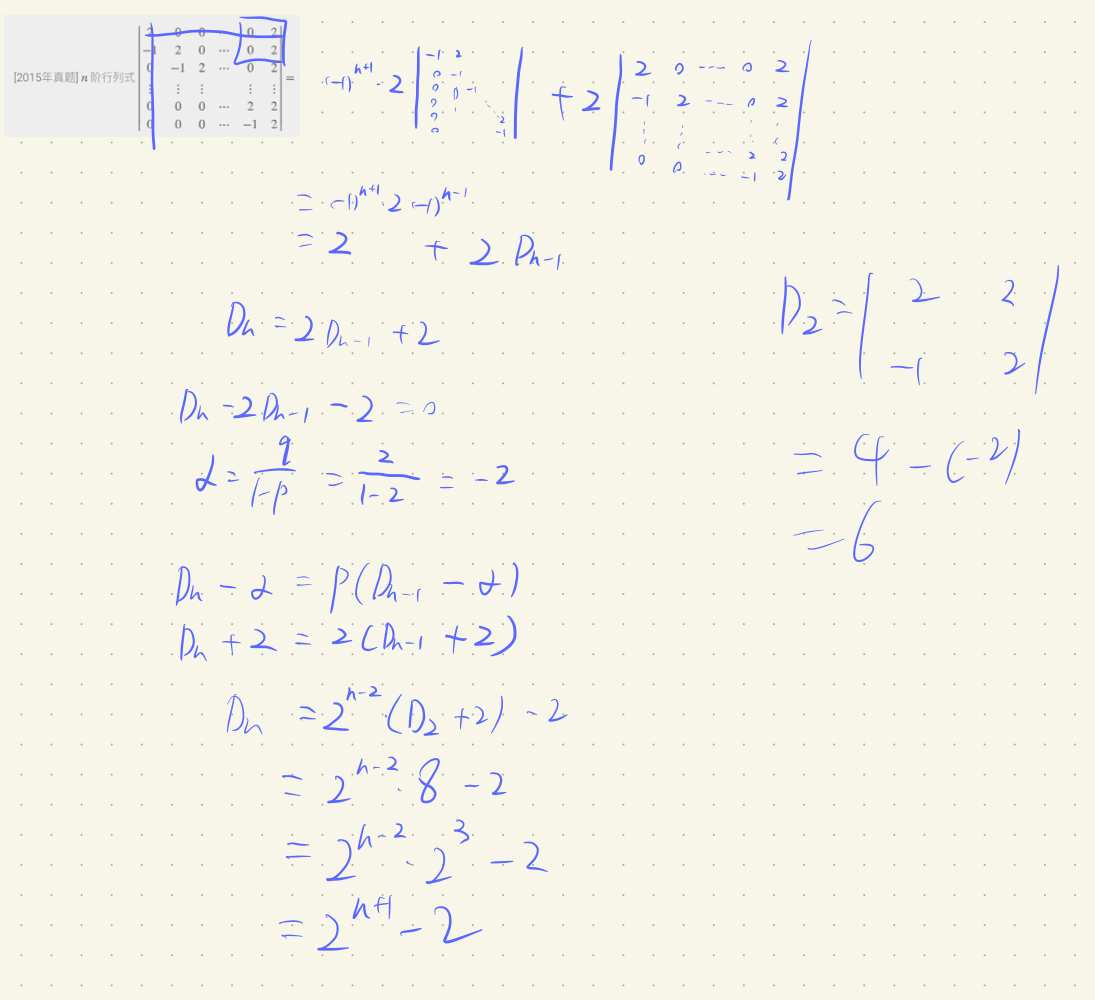 [2015年真题] n 阶行列式 | 2 0 0 ⋯ 0 2 | =
| -1 2 0 ⋯ 0 2 |
| 0 -1 2 ⋯ 0 2 |
| ⋮ ⋮ ⋮ ⋮ ⋮ |
| 0 0 0 ⋯ 2 2 |
| 0 0 0 ⋯ -1 2 |
(-1)^{n+1} · 2 | -1 2 | + 2 | 2 0 ---- 0 2 |
| 0 -1 | | -1 2 ---- 0 2 |
| 0 0 -1 | | ⋮ ⋮ ⋮ ⋮ |
| 0 ⋱ | | 0 ---- 2 2 |
| 0 2 | | 0 ---- -1 2 |
| 0 -1 |
= (-1)^{n+1} · 2 · (-1)^{n-1}
= 2 + 2 D_{n-1}
D_n = 2 D_{n-1} + 2
D_n - 2D_{n-1} - 2 = 0
α = q/(1-p) = 2/(1-2) = -2
D_n - α = p(D_{n-1} - α)
D_n + 2 = 2(D_{n-1} + 2)
D_n = 2^{n-2} (D_2 + 2) - 2
= 2^{n-2} · 8 - 2
= 2^{n-2} · 2^3 - 2
= 2^{n+1} - 2
D_2 = | 2 2 |
| -1 2 |
= 4 - (-2)
= 6